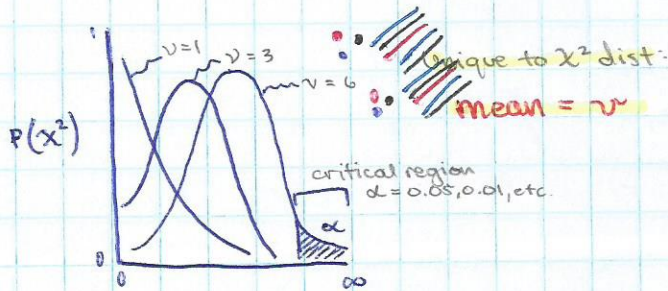 1
ν=1
ν=3
ν=6
P(χ²)
critical region
α=0.05, 0.01, etc.
α
0
0
∞
Unique to χ² dist:
mean = ν